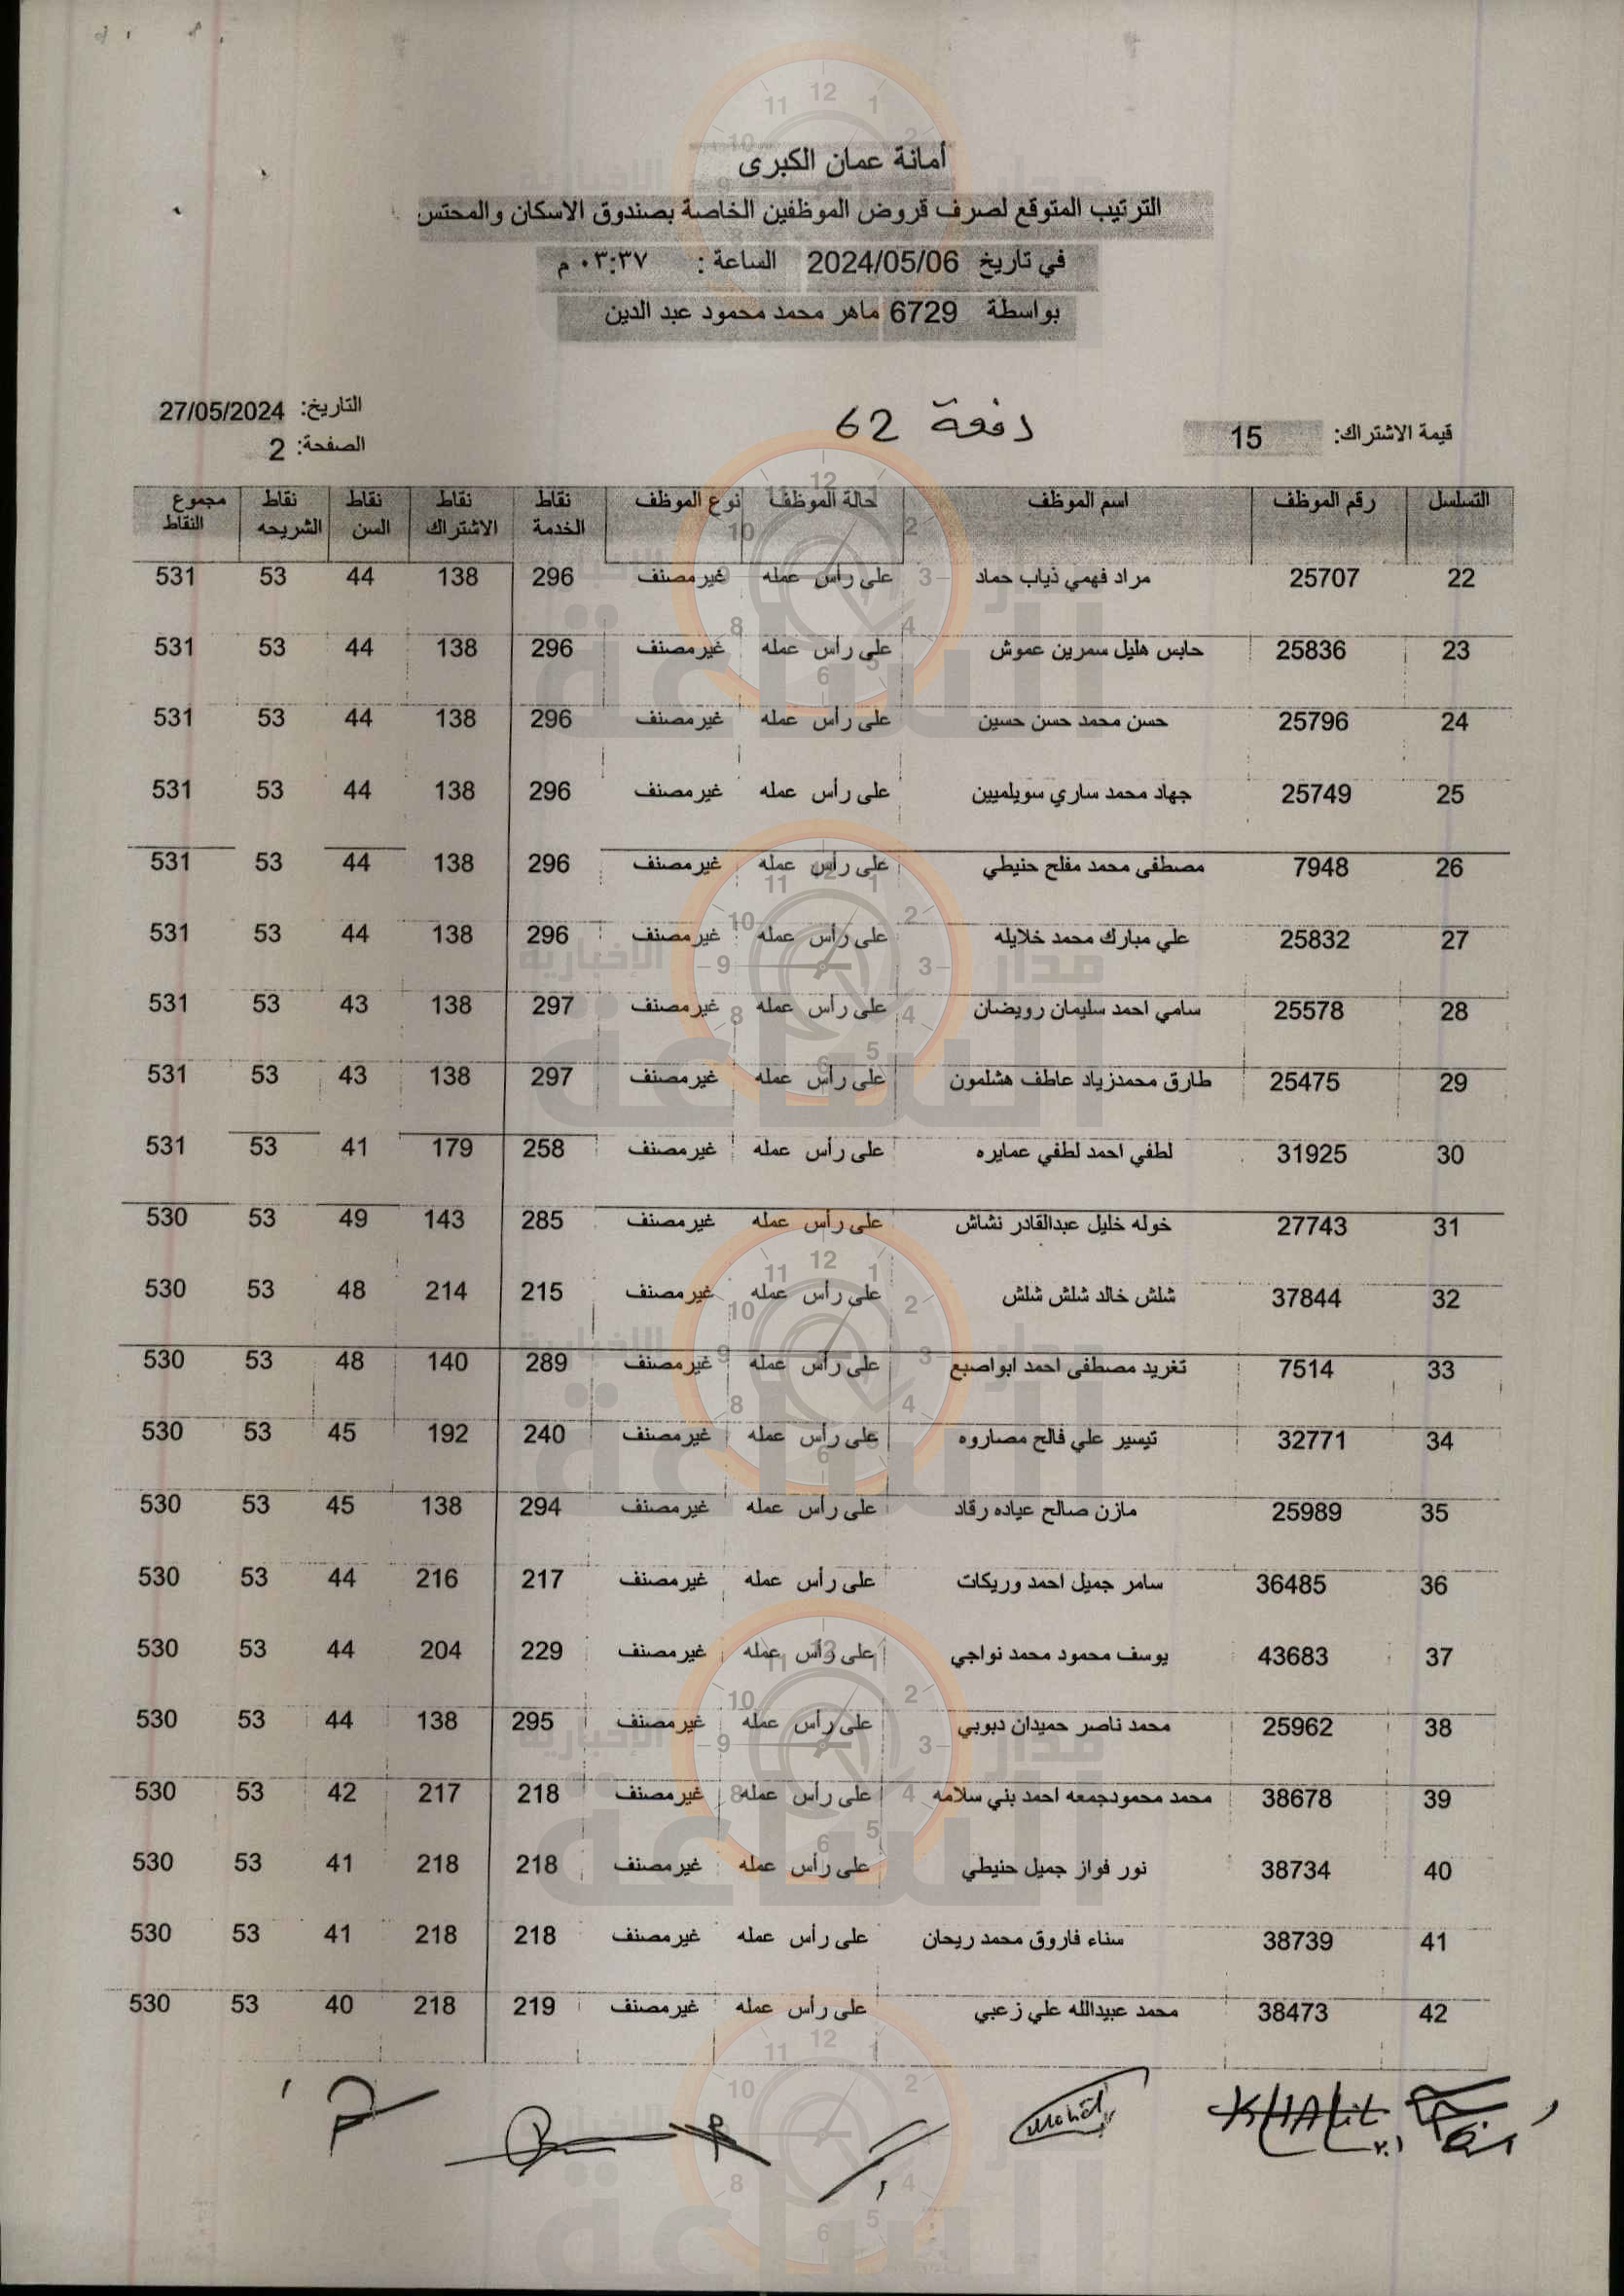 أمانة عمان الكبرى
الترتيب المتوقع لصرف قروض الموظفين الخاصة بصندوق الاسكان والمحتس
في تاريخ 2024/05/06 الساعة : ٠٣:٣٧ م
بواسطة 6729 ماهر محمد محمود عبد الدين
قيمة الاشتراك: 15 دفعة 62 التاريخ: 27/05/2024
الصفحة: 2
التسلسل رقم الموظف اسم الموظف حالة الموظف نوع الموظف نقاط الخدمة نقاط الاشتراك نقاط السن نقاط الشريحه مجموع النقاط
22 25707 مراد فهمي ذياب حماد على رأس عمله غير مصنف 296 138 44 53 531
23 25836 حابس هليل سمرين عموش على رأس عمله غير مصنف 296 138 44 53 531
24 25796 حسن محمد حسن حسين على رأس عمله غير مصنف 296 138 44 53 531
25 25749 جهاد محمد ساري سويلميين على رأس عمله غير مصنف 296 138 44 53 531
26 7948 مصطفى محمد مفلح حنيطي على رأس عمله غير مصنف 296 138 44 53 531
27 25832 علي مبارك محمد خلايله على رأس عمله غير مصنف 296 138 44 53 531
28 25578 سامي احمد سليمان رويضان على رأس عمله غير مصنف 297 138 43 53 531
29 25475 طارق محمدزياد عاطف هشلمون على رأس عمله غير مصنف 297 138 43 53 531
30 31925 لطفي احمد لطفي عمايره على رأس عمله غير مصنف 258 179 41 53 531
31 27743 خوله خليل عبدالقادر نشاش على رأس عمله غير مصنف 285 143 49 53 530
32 37844 شلش خالد شلش شلش على رأس عمله غير مصنف 215 214 48 53 530
33 7514 تغريد مصطفى احمد ابواصبع على رأس عمله غير مصنف 289 140 48 53 530
34 32771 تيسير علي فالح مصاروه على رأس عمله غير مصنف 240 192 45 53 530
35 25989 مازن صالح عياده رقاد على رأس عمله غير مصنف 294 138 45 53 530
36 36485 سامر جميل احمد وريكات على رأس عمله غير مصنف 217 216 44 53 530
37 43683 يوسف محمود محمد نواجي على رأس عمله غير مصنف 229 204 44 53 530
38 25962 محمد ناصر حميدان دبوبي على رأس عمله غير مصنف 295 138 44 53 530
39 38678 محمد محمودجمعه احمد بني سلامه على رأس عمله غير مصنف 218 217 42 53 530
40 38734 نور فواز جميل حنيطي على رأس عمله غير مصنف 218 218 41 53 530
41 38739 سناء فاروق محمد ريحان على رأس عمله غير مصنف 218 218 41 53 530
42 38473 محمد عبيدالله علي زعبي على رأس عمله غير مصنف 219 218 40 53 530
KHALIL
مدار الساعة الإخبارية